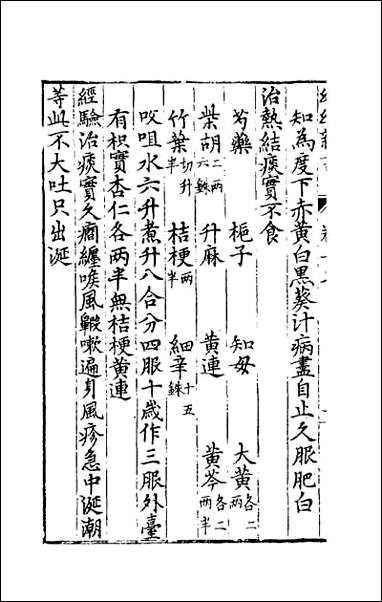 知為度下赤黄白黒葵汁病盡自止久服肥白
治熱結痰實不食
芍藥　梔子　知母　大黄各二兩
柴胡二兩六銖　升麻　黄連　黄芩各二兩半
竹葉切升半　桔梗兩半　細辛十五銖
㕮咀水六升煮升八合分四服十歳作三服外臺
有枳實杏仁各兩半無桔梗黄連
經驗治痰實久癇纏喉風齁嗽遍身風疹急中涎潮
等此不大吐只出涎